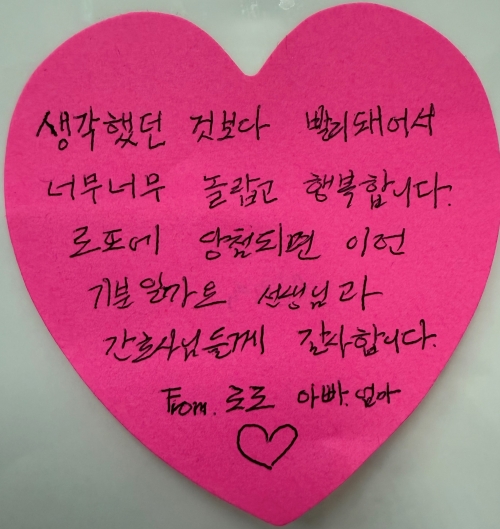 생각했던 것보다 빨리돼어서
너무너무 놀랍고 행복합니다.
로또에 당첨되면 이런
기분일까요 선생님과
간호사님들게 감사합니다.
From. 로또 아빠.엄마